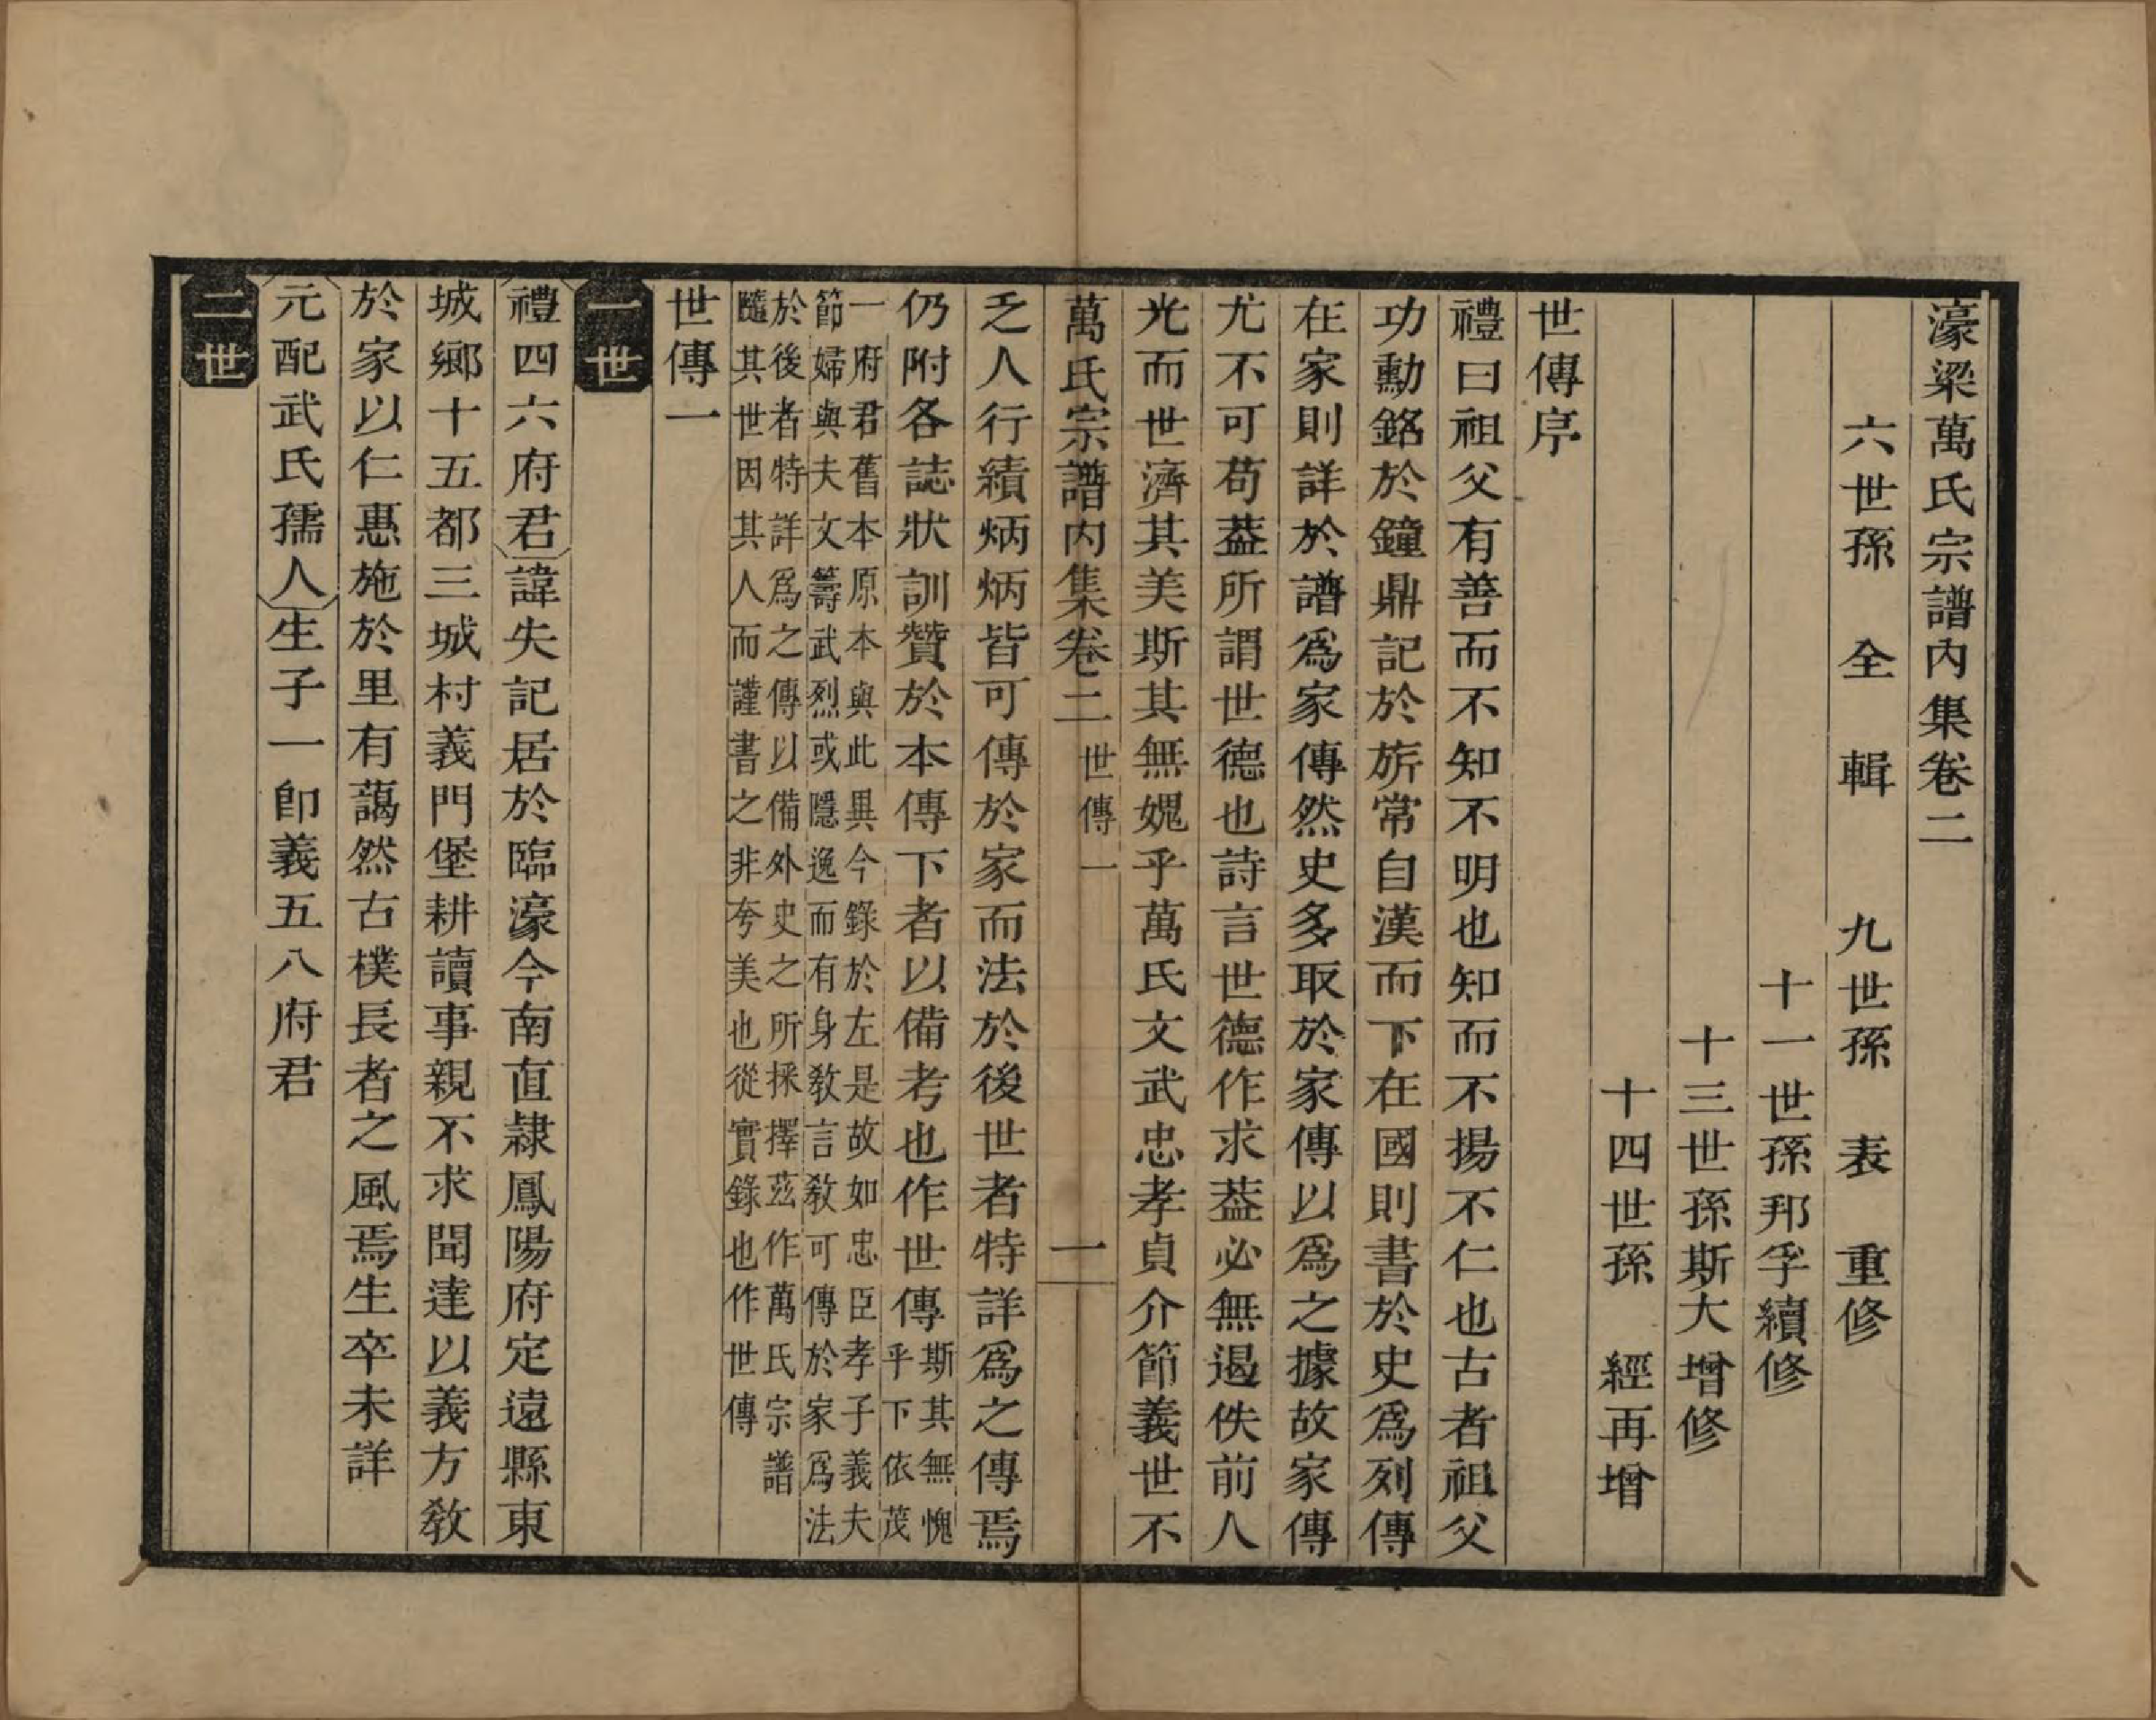 濠梁萬氏宗譜內集卷二
六世孫　全　輯　　九世孫　表　重修
十一世孫邦孚續修
十三世孫斯大增修
十四世孫　經再增
世傳序
禮曰祖父有善而不知不明也知而不揚不仁也古者祖父
功勳銘於鐘鼎記於旂常自漢而下在國則書於史爲列傳
在家則詳於譜爲家傳然史多取於家傳以爲之據故家傳
尤不可苟葢所謂世德也詩言世德作求葢必無遏佚前人
光而世濟其美斯其無媿乎萬氏文武忠孝貞介節義世不
萬氏宗譜內集卷二　世傳一　一
乏人行績炳炳皆可傳於家而法於後世者特詳爲之傳焉
仍附各誌狀訓贊於本傳下者以備考也作世傳
斯其無愧
乎下依茂
一府君舊本原本與此異今錄於左是故如忠臣孝子義夫
節婦與夫文籌武烈或隱逸而有身敎言敎可傳於家爲法
於後者特詳爲之傳以備外史之所採擇茲作萬氏宗譜
隨其世因其人而謹書之非夸美也從實錄也作世傳
世傳一
一世
禮四六府君諱失記居於臨濠今南直隷鳳陽府定遠縣東
城鄉十五都三城村義門堡耕讀事親不求聞達以義方敎
於家以仁惠施於里有藹然古樸長者之風焉生卒未詳
元配武氏孺人生子一卽義五八府君
二世